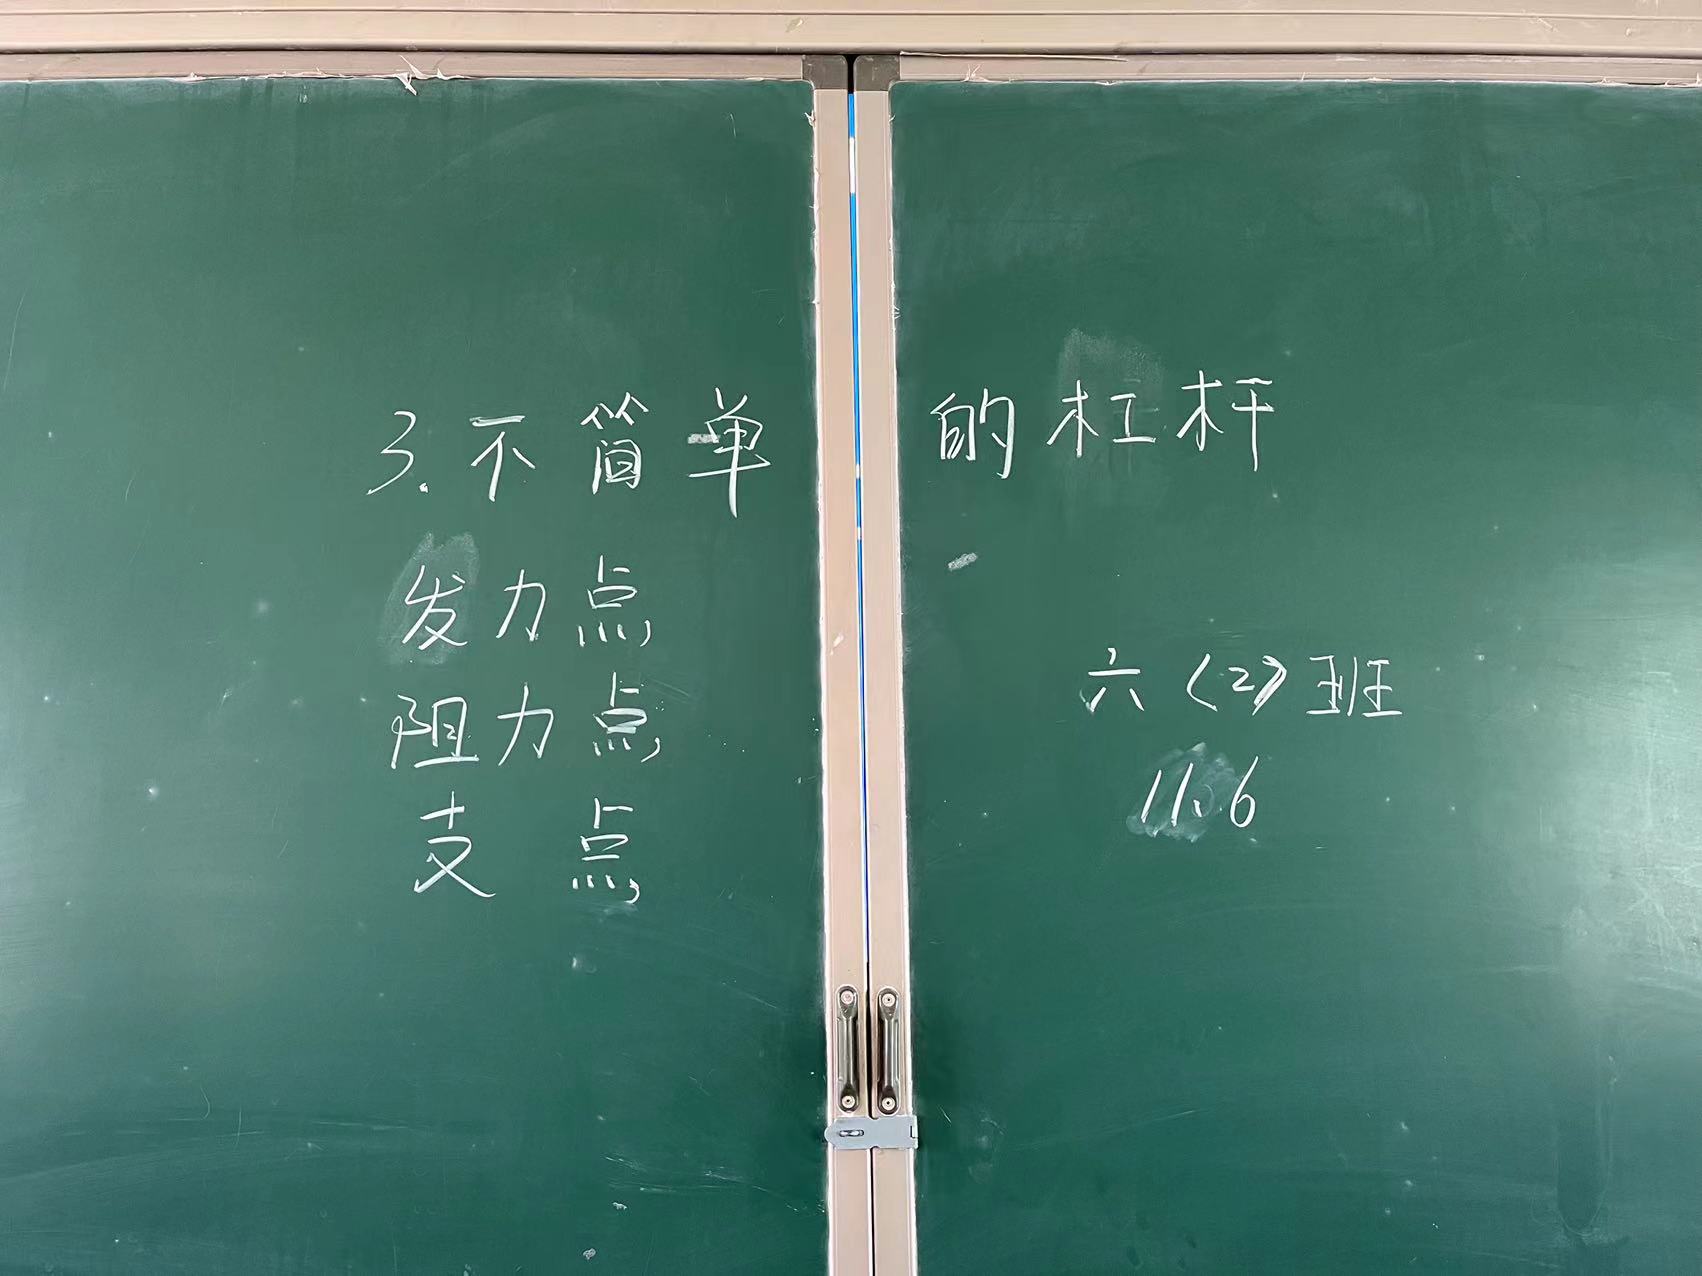 3.不简单的杠杆
发力点
阻力点
支点
六(2)班
11.6